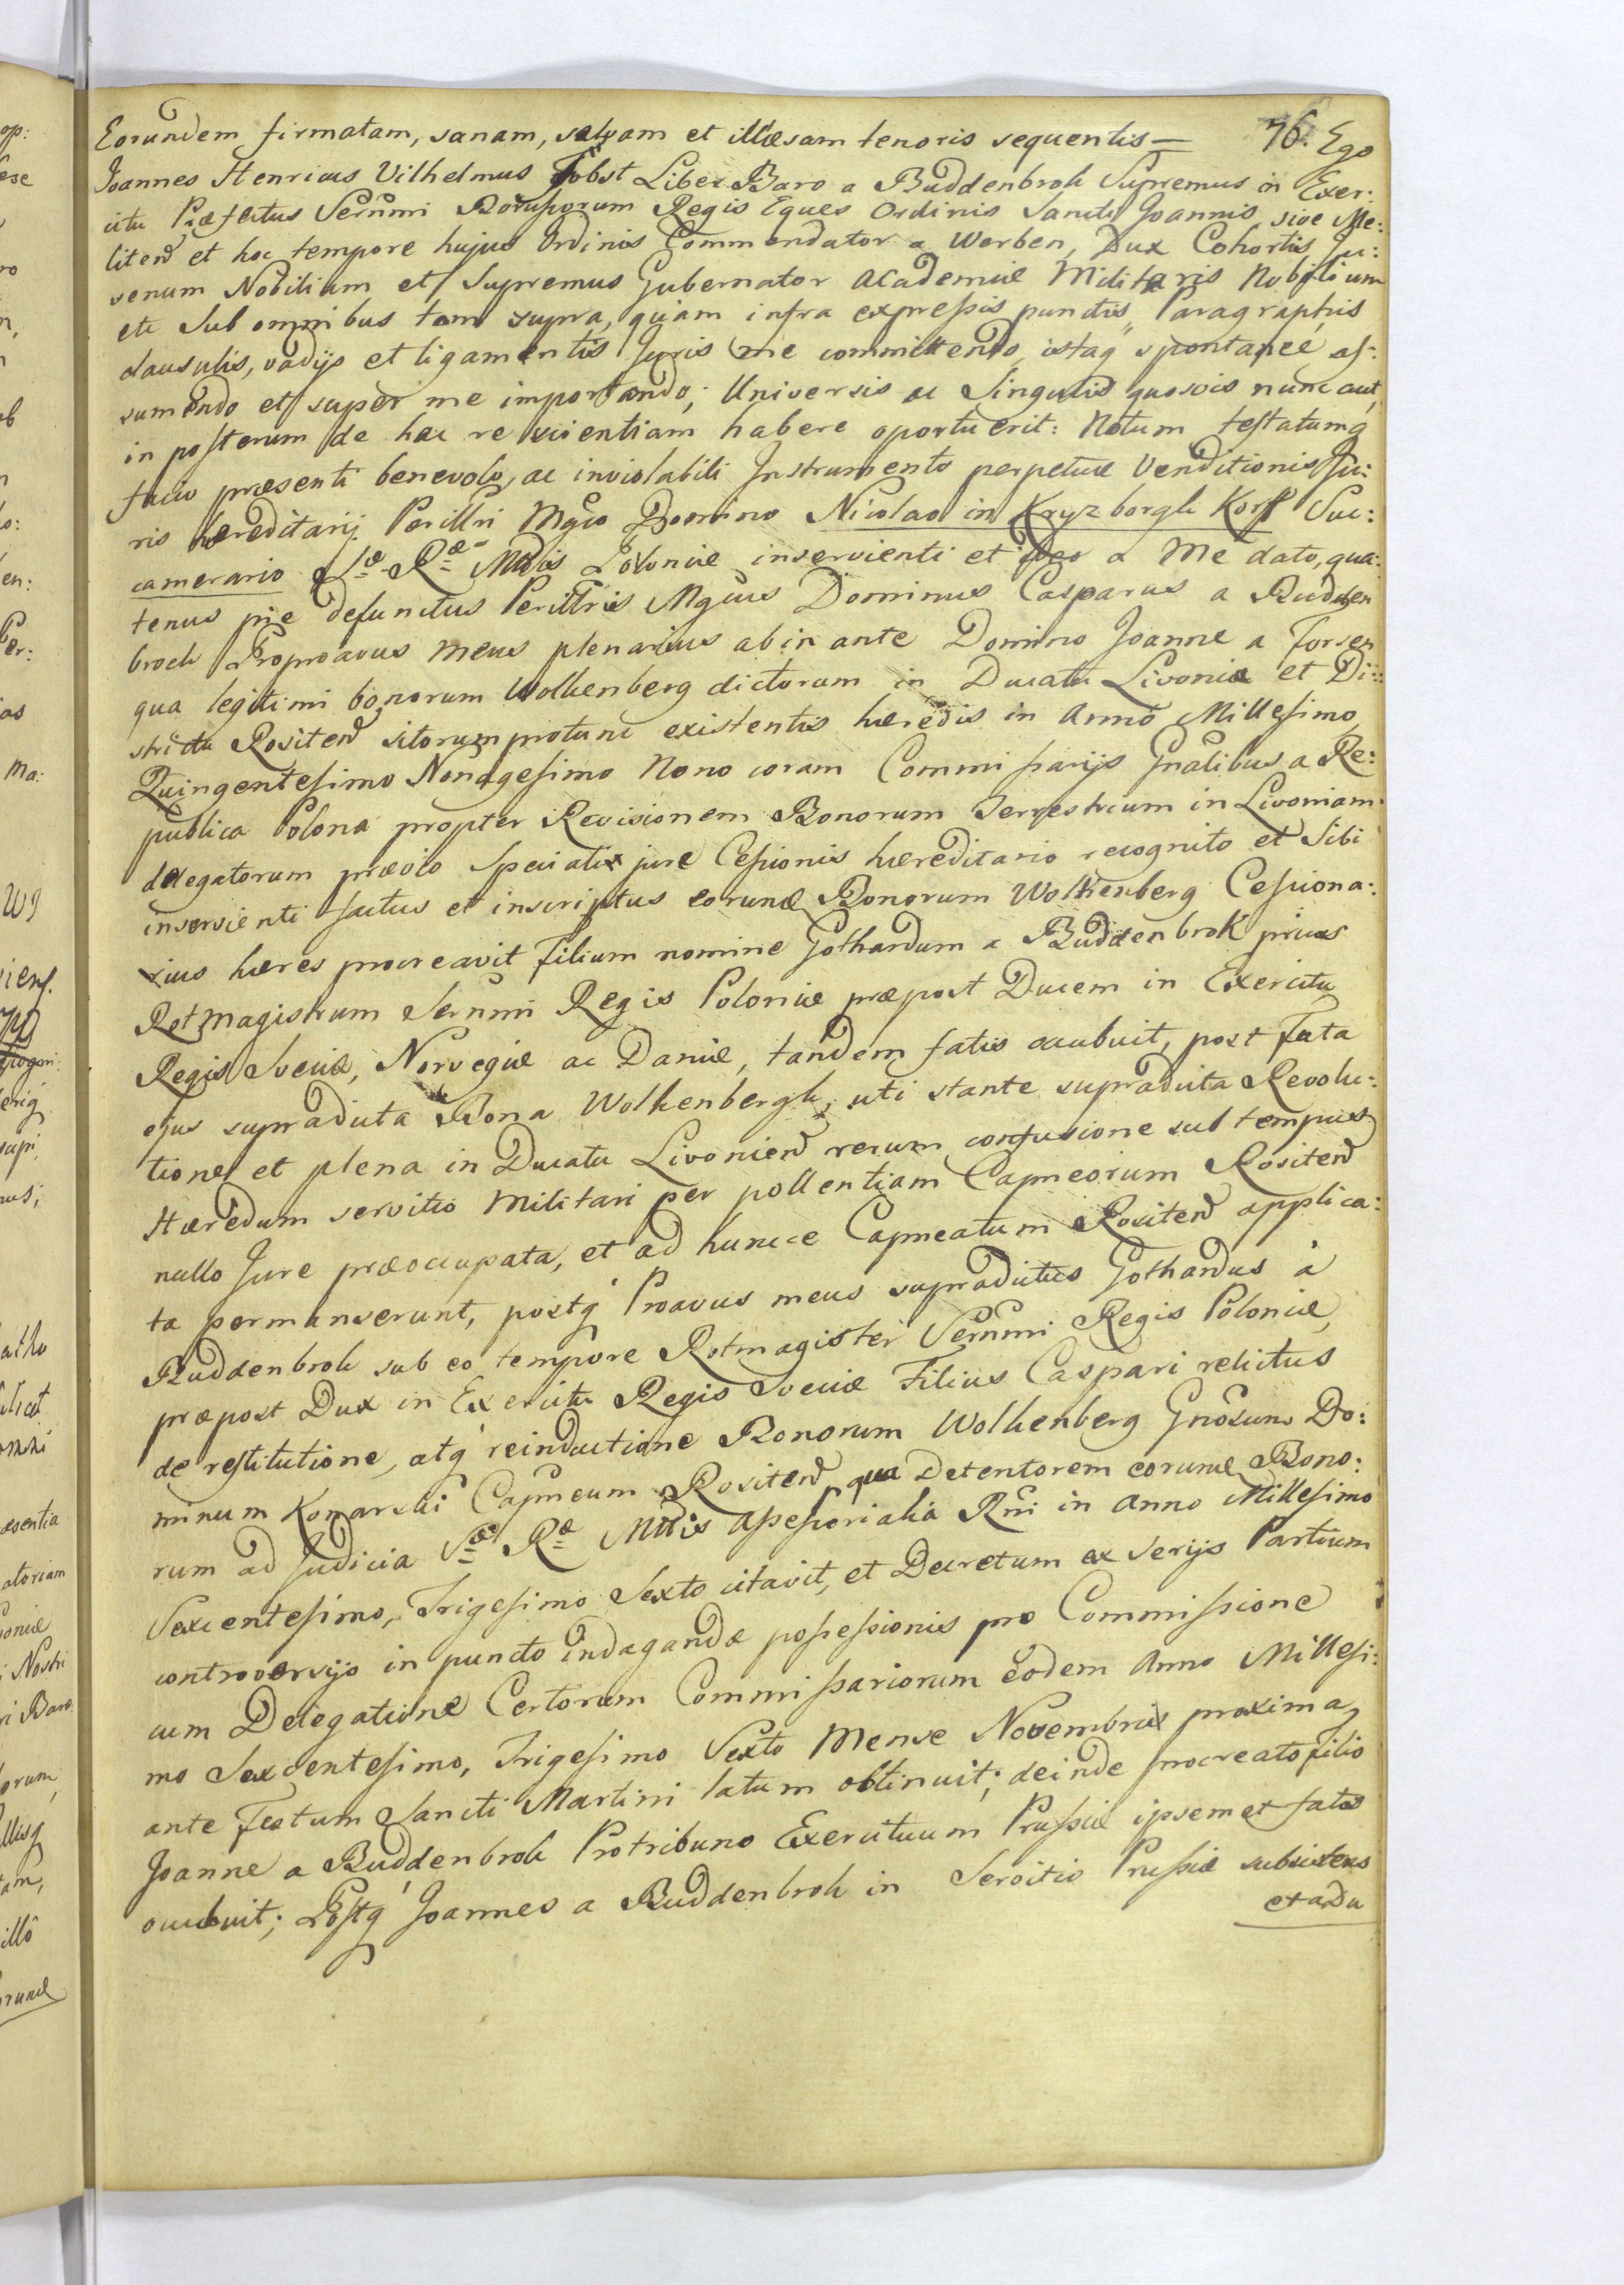 76.
Eorundem firmatam, sanam, salvam et illæsam tenoris sequentis — Ego
Joannes Henricus Vilhelmus Jobst Liber Baro a Buddenbrok Supremus in Exer:
citu Præfectus Serñmi Borußorum Regis Eques Ordinis Sancti Joannis sive Me:
liten̄ et hoc tempore hujus Ordinis Commendator a Werben, Dux Cohortis Ju:
venum Nobilium et Supremus Gubernator Academiæ Militaris Nobilium
etc Sub omnibus tam supra, quam infra expreßis punctis, Paragraphis
clausulis, vadijs et ligamentis Juris me committendo, istaq spontanee as:
sumendo et super me importando; Universis ac Singulis quosvis nunc aut,
in posterum de hac re scientiam habere oportuerit: Notum testatumq
facio præsenti benevolo, ac inviolabili Instrumento perpetuæ Venditionis Ju:
ris hæreditarij Perillri Mgco Domino Nicolao in Kryzborgk Korff Suc:
camerario Sæ Ræ Mttis Poloniæ inservienti et a Me dato, qua:
tenus pie defunctus Perillris Mgcus Dominus Casparus a Budden
brock Proproavus meus plenarius ab in ante Domino Joanne a Forsen
qua legitimi bonorum Wolkenberg dictorum in Ducatu Livoniæ et Di:
strictu Rositen̄ sitorum protunc existentis hæredis in Anno Millesimo
Quingentesimo Nonagesimo Nono coram Commißarijs Gñalibus a Re:
publica Polona propter Revisionem Bonorum Terrestrium in Livoniam
delegatorum prævio Speciali jure Ceßionis hæreditario recognito et Sibi
inservienti factus et inscriptus eorund Bonorum Wolkenberg Ceßiona:
rius hæres procreavit Filium nomine Gothardum a Buddenbrok prius
Rotmagistrum Serñmi Regis Poloniæ præpost Ducem in Exercitu
Regis Sveciæ, Norvegiæ ac Daniæ, tandem fatis occubuit, post Fata
ejus supradicta Bona Wolkenbergk, uti stante supradicta Revolu:
tione et plena in Ducatu Livonien̄ rerum confusione sub tempus
Hæredum servitio Militari per pollentiam Capneorum Rositen̄
nullo Jure præoccupata, et ad huncce Capneatum Rositen̄ applica:
ta permanserunt, postq Proavus meus supradictus Gothardus à
Buddenbrok sub eo tempore Rotmagister Serñmi Regis Poloniæ,
præpost Dux in Exercitu Regis Sveciæ Filius Caspari relictus
de restitutione, atq reinductione Bonorum Wolkenberg Gnosum Do:
minum Konarski Capneum Rositen̄ qua Detentorem eorund Bono:
rum ad Judicia Sæ Ræ Mttis Aßeßorialia Rñi in Anno Millesimo
Sexcentesimo, Trigesimo Sexto citavit, et Decretum ex Serijs Partium
controversijs in puncto indagandæ poßeßionis pro Commißione
cum Delegatione Certorum Commißariorum eodem Anno Millesi:
mo Sexcentesimo, Trigesimo Sexto Mense Novembris proxima
ante Festum Sancti Martini latum obtinuit; deinde procreato filio
Joanne a Buddenbrok Protribuno Exercituum Prußiæ ipsemet fatis
occubuit; Postq Joannes a Buddenbrok in Servitio Prußiæ subsistens
et actu